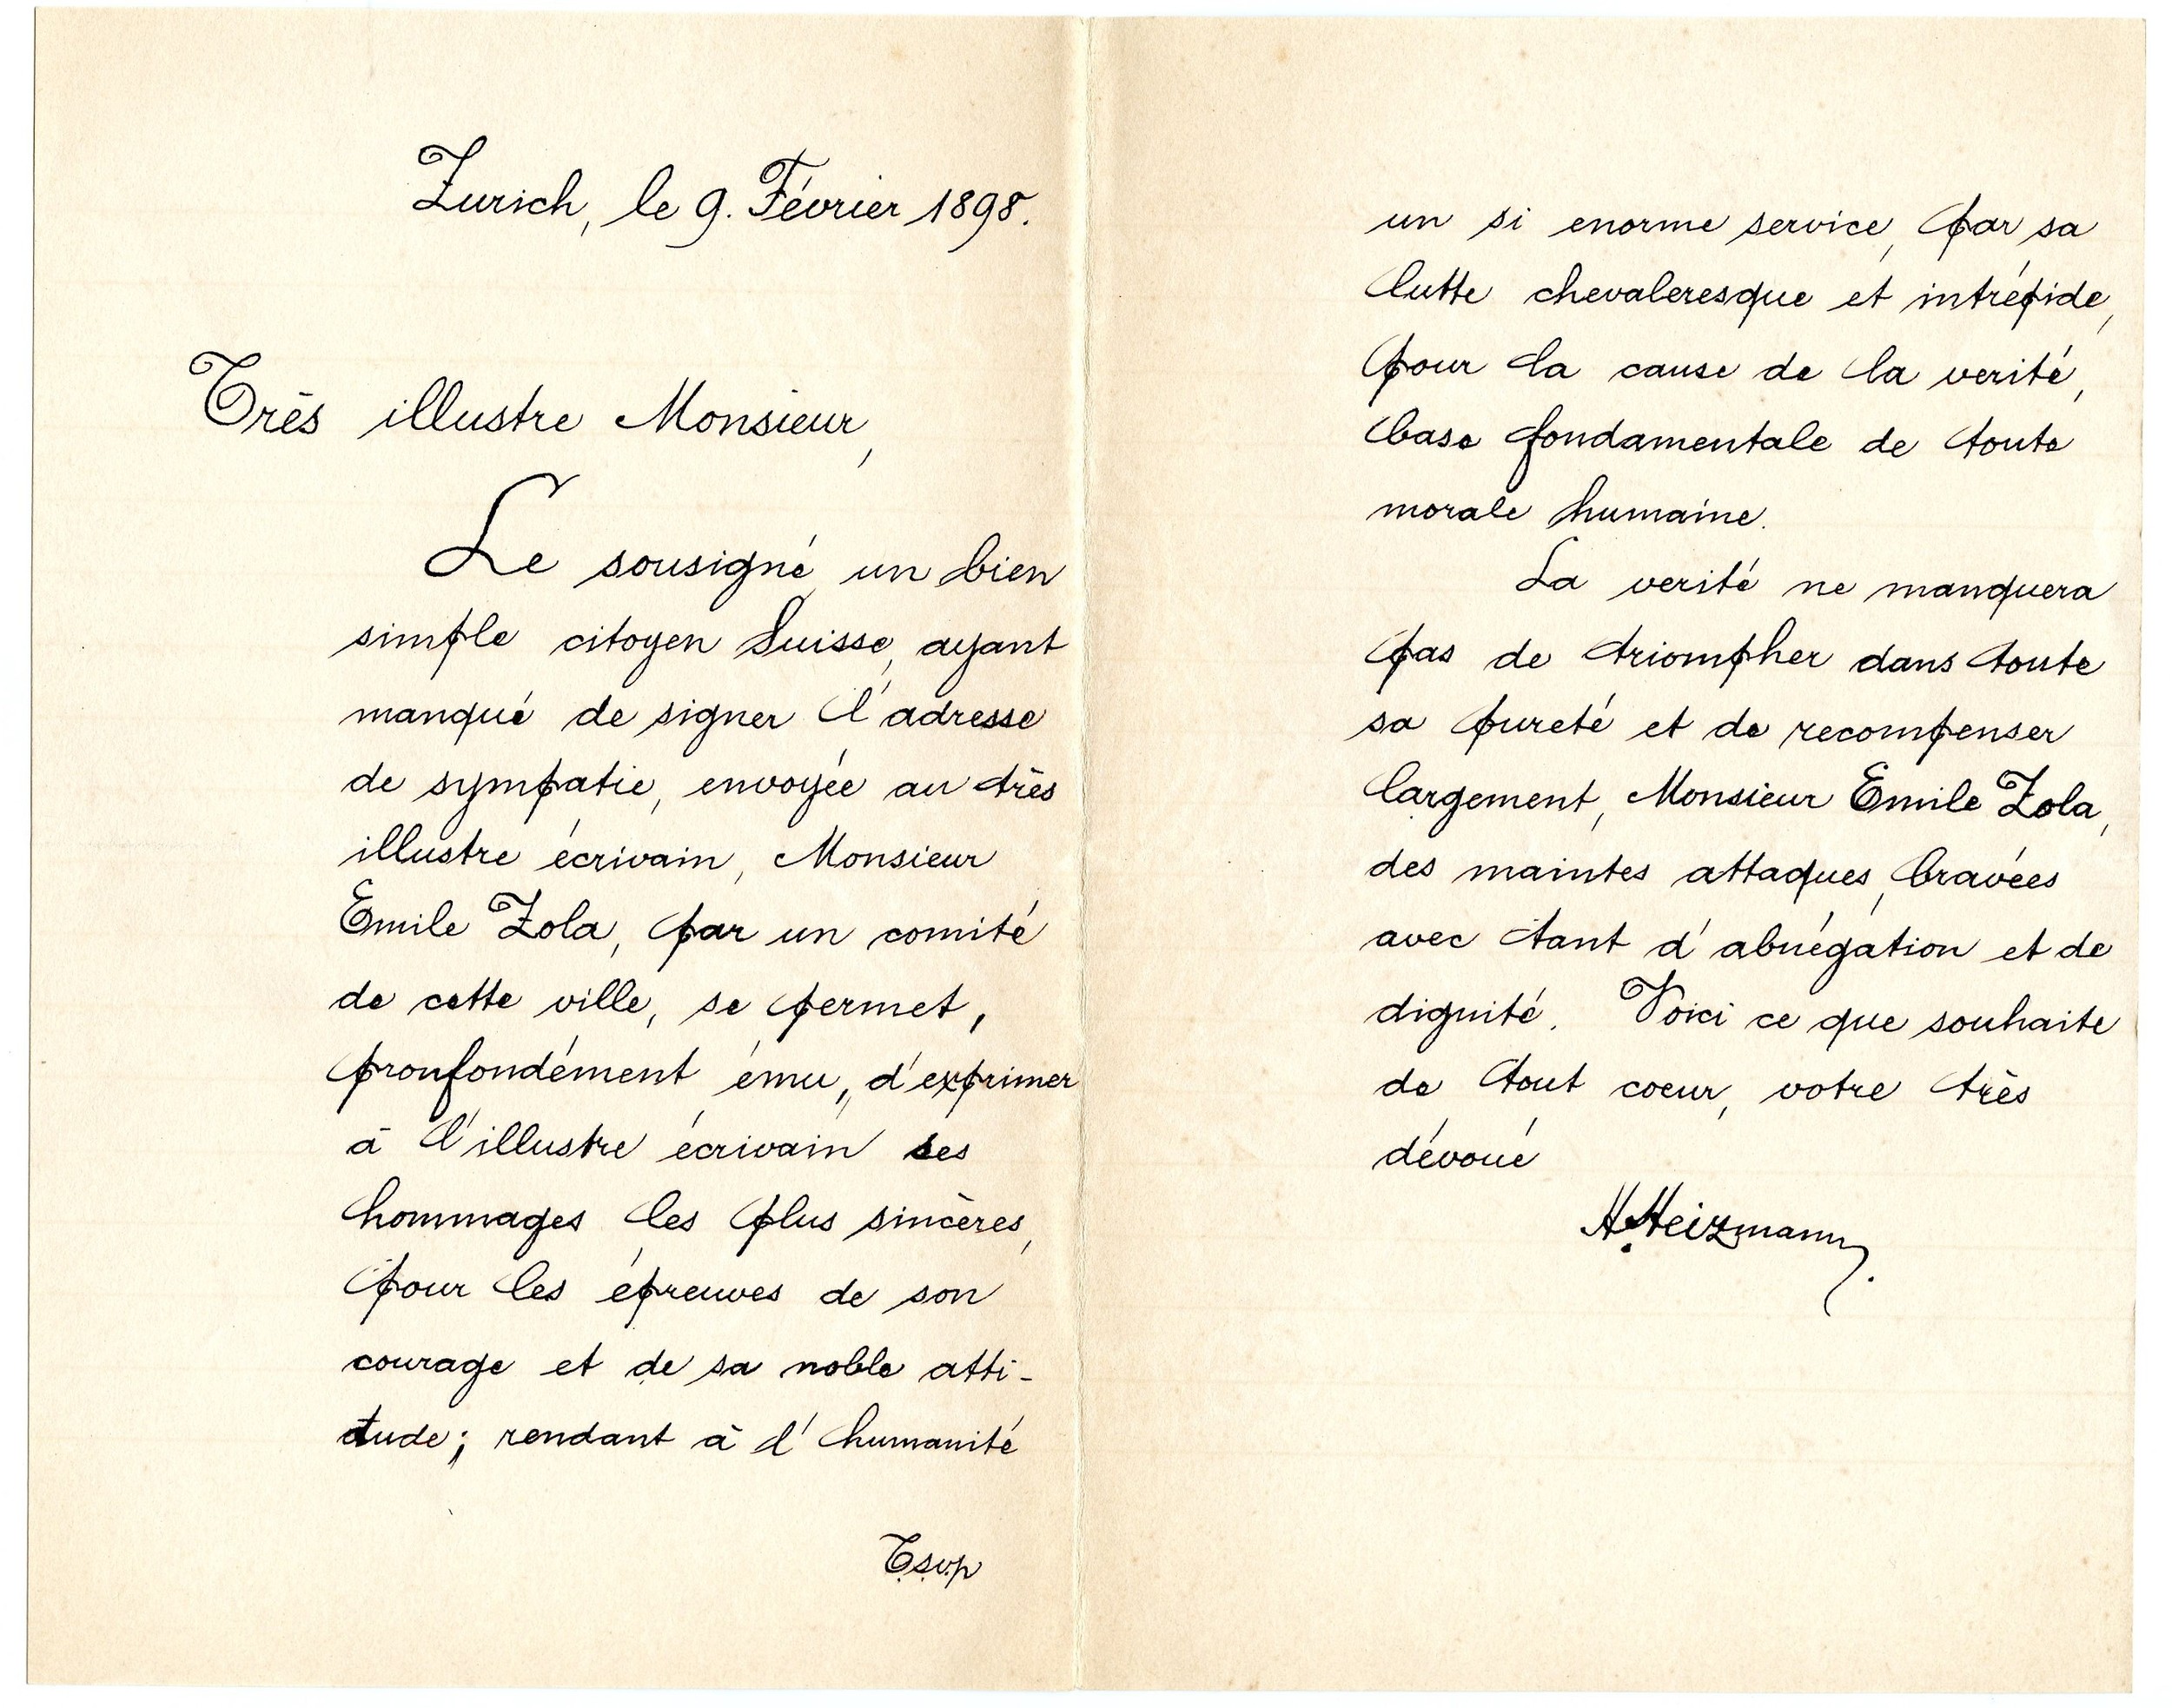 Zurich, le 9. Février 1898.
Très illustre Monsieur,
Le sousigné, un bien
simple citoyen Suisse, ayant
manqué de signer l'adresse
de sympatie, envoyée au très
illustre écrivain, Monsieur
Emile Zola, par un comité
de cette ville, se permet,
proufondément ému, d'exprimer
à l'illustre écrivain ses
hommages les plus sincères,
pour les épreuves de son
courage et de sa noble atti-
tude; rendant à l'humanité
T.s.v.p
un si enorme service, par sa
lutte chevaleresque et intrépide,
pour la cause de la verité,
base fondamentale de toute
morale humaine.
La verité ne manquera
pas de triompher dans toute
sa pureté et de recompenser
largement, Monsieur Emile Zola,
des maintes attaques, bravées
avec tant d'abnégation et de
dignité. Voici ce que souhaite
de tout coeur, votre très
dévoué
H. Heizmann.